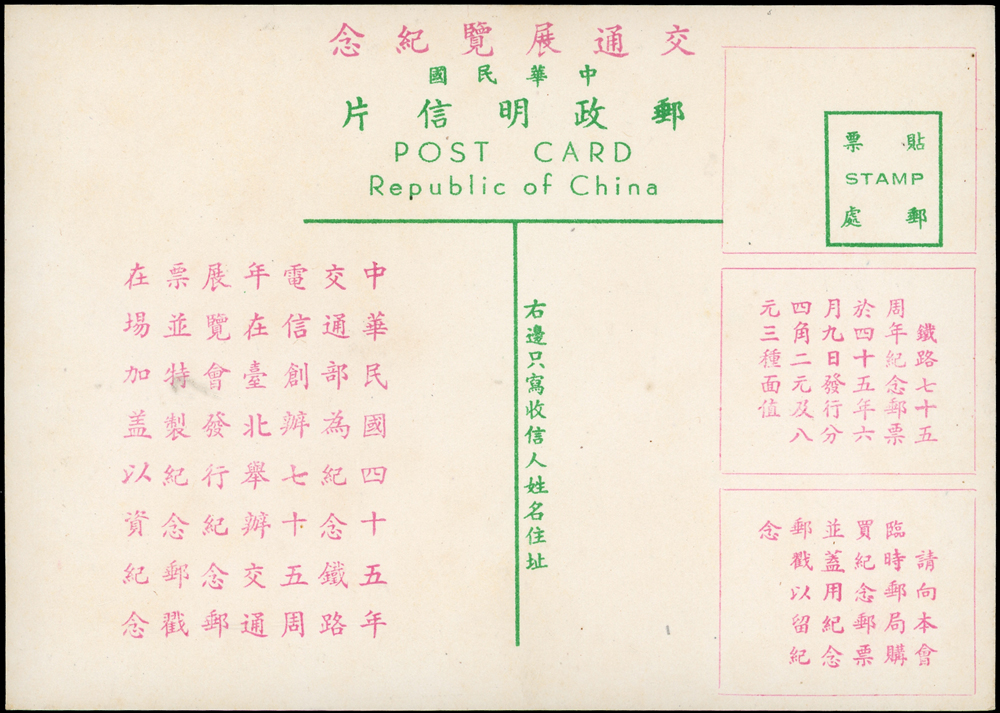 交通展覽紀念
中華民國
郵政明信片
POST CARD
Republic of China
貼郵
票處
STAMP
鐵路七十五
周年紀念郵票
於四十五年六
月九日發行分
四角二元及八
元三種面值
請向本會
臨時郵局購
買紀念郵票
並蓋用紀念
郵戳以留紀
念
右邊只寫收信人姓名住址
中華民國四十五年
交通部為紀念鐵路
電信創辦七十五周
年在臺北舉辦交通
展覽會發行紀念郵
票並特製紀念郵戳
在場加盖以資紀念